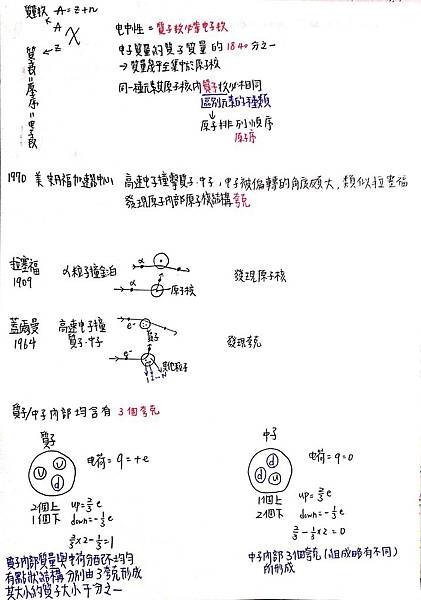 質量數 A = z + n
A
X
z
質子數 = 原子序 = 電子數
电中性 = 質子數等电子數
电子質量的質子質量的 1840 分之一
→ 質量幾乎全集中於原子核
同一種元素其原子核內質子數必相同
區別元素的種類
↓
原子排列順序
原子序
1970 美 史丹福加速器中心 高速电子撞擊質子.中子, 电子被偏轉的角度頗大, 類似拉塞福
發現原子內部原子核結構夸克
拉塞福
1909
α粒子撞金泊
α
α
原子核
發現原子核
蓋爾曼
1964
高速电子撞
質子.中子
e⁻
質子
e⁻
發現夸克
質子/中子內部均含有 3個夸克
質子
u u d
电荷 = q = +e
2個上 up = 2/3 e
1個下 down = -1/3 e
2/3 × 2 - 1/3 = 1
質子內部質量與电荷分配不均勻
有點狀結構 分別由 3 夸克形成
其大小約質子大小千分之一
中子
d d u
电荷 = q = 0
1個上 up = 2/3 e
2個下 down = -1/3 e
2/3 - 1/3 × 2 = 0
中子內部 3個夸克 (組成略有不同)
所形成